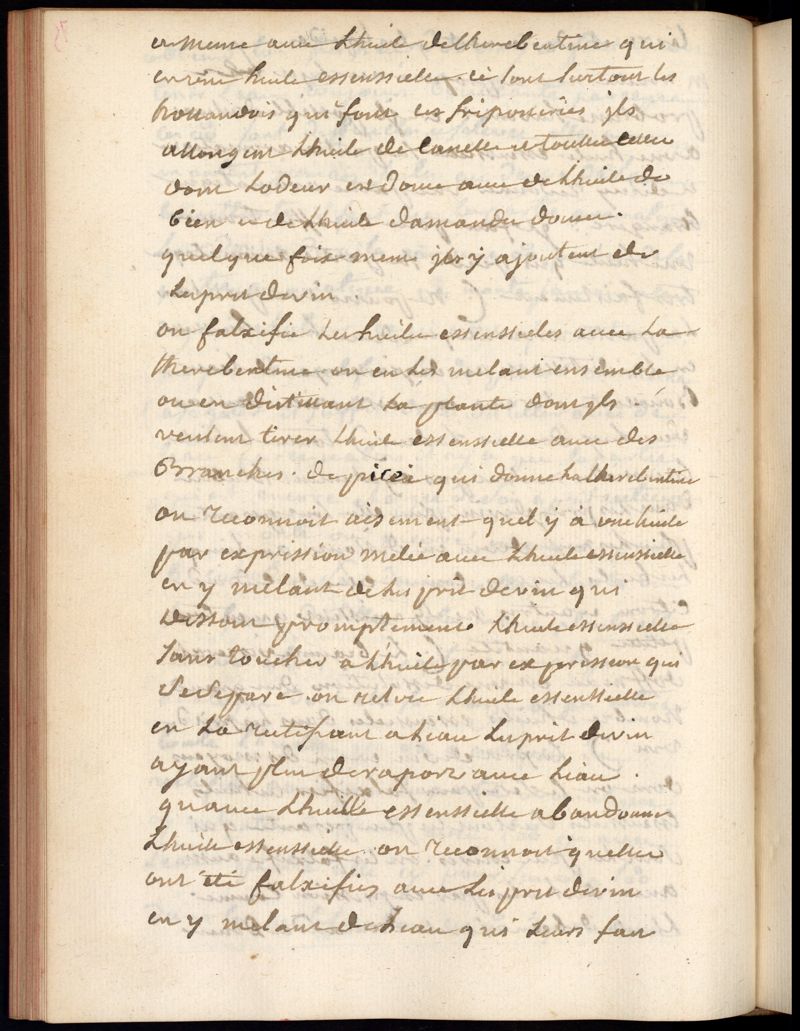 et meme avec Lhuile de therebentine qui
en vrai huile essenssielle. ce sont surtout les
hollandois qui font ces friponneries jls
allongent Lhuile de Canelle et toutes Celles
dont Lodeur est douce avec de Lhuile de
bien et de Lhuile damandes douces.
quelque fois meme jls y ajoutent de
Lesprit de vin.
on falsifie Les huiles essenssieles avec La
therebentine ou en Les melant ensemble
ou en distillant La plante dont jls
veulent tirer Lhuile essenssielle avec des
Branches de picéa qui donne La therebentine
on reconnoit aisement quil y à une huile
par expression melée avec Lhuile essenssielle
en y melant de Lesprit de vin qui
dissout promptement Lhuile essenssielle
sans toucher a Lhuile par expression qui
se separe. on retire Lhuile essentielle
en La rectifiant a Leau Lesprit de vin
ayant plus de raport avec Leau
quavec Lhuille essenssielle abandonne
Lhuile essenssielle. on reconnoit quelles
ont été falsifiés avec Lesprit de vin
en y melant de Leau qui Leurs fait